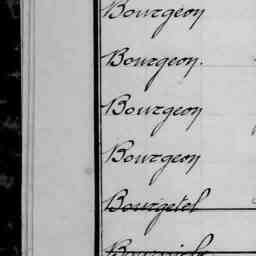 Bourgeon
Bourgeon.
Bourgeon
Bourgeon
Bourgetel